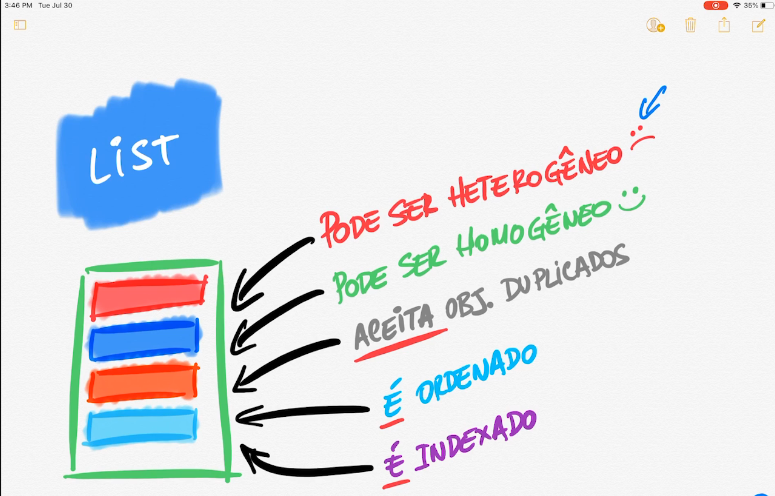 3:46 PM Tue Jul 30
35%
LIST
PODE SER HETEROGÊNEO
PODE SER HOMOGÊNEO
ACEITA OBJ. DUPLICADOS
É ORDENADO
É INDEXADO